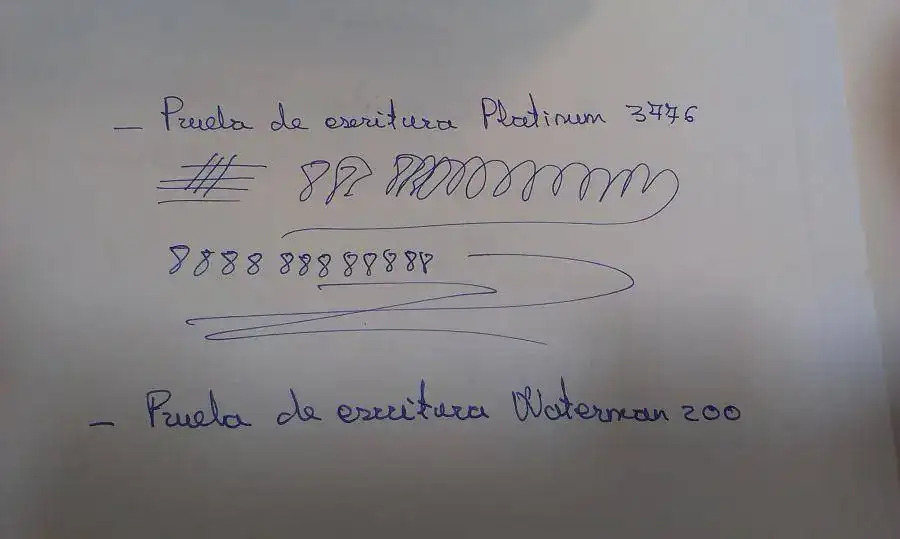 - Prueba de escritura Platinum 3776
8888 888 88888
- Prueba de escritura Waterman 200